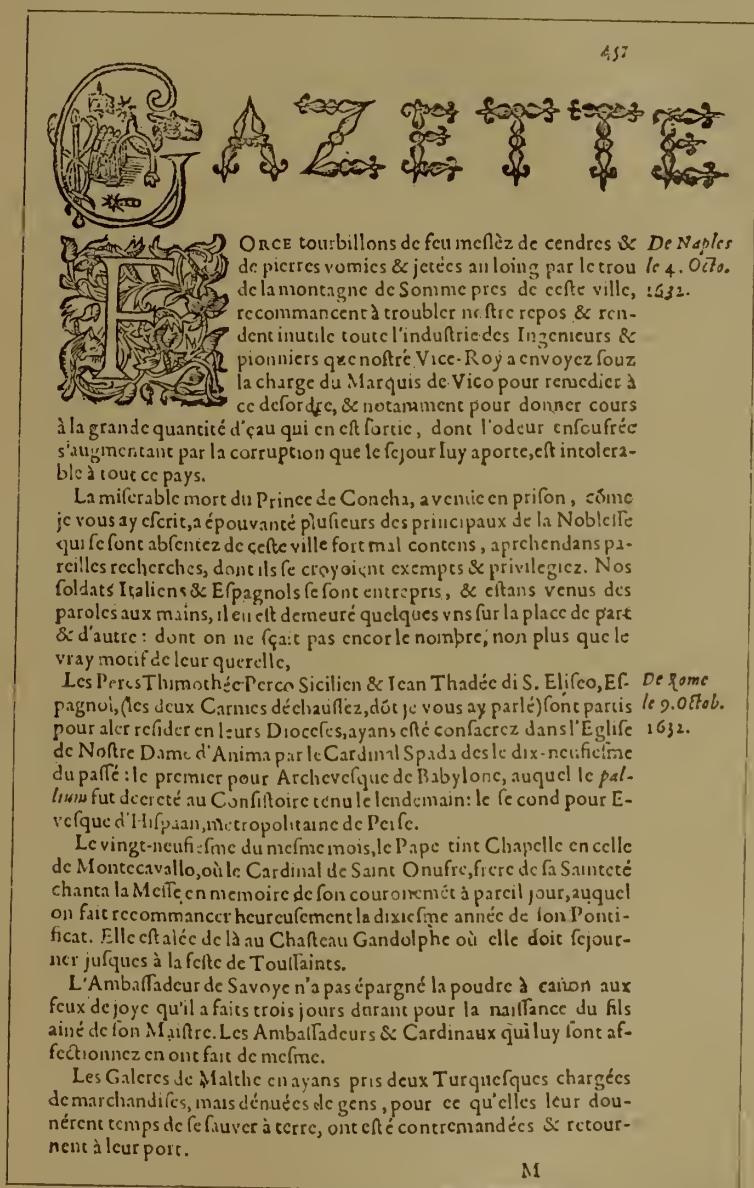 457
GAZETTE
FORCE tourbillons de feu meslèz de cendres & De Naples
de pierres vomies & jetées au loing par le trou le 4. Octo.
de la montagne de Somme pres de ceste ville, 1632.
recommancent à troubler nostre repos & ren-
dent inutile toute l'industrie des Ingenieurs &
pionniers que nostre Vice-Roy a envoyez souz
la charge du Marquis de Vico pour remedier à
ce desordre, & notamment pour donner cours
à la grande quantité d'eau qui en est sortie, dont l'odeur ensoufrée
s'augmentant par la corruption que le sejour luy aporte, est intolera-
ble à tout ce pays.
La miserable mort du Prince de Concha, avenue en prison, cõme
je vous ay escrit, a épouvanté plusieurs des principaux de la Noblesse
qui se sont absentez de ceste ville fort mal contens, aprehendans pa-
reilles recherches, dont ils se croyoient exempts & privilegiez. Nos
soldats Italiens & Espagnols se sont entrepris, & estans venus des
paroles aux mains, il en est demeuré quelques vns sur la place de part
& d'autre: dont on ne sçait pas encor le nombre, non plus que le
vray motif de leur querelle,
Les Peres Thimothée Perco Sicilien & Iean Thadée di S. Eliseo, Es- De Rome
pagnol, (les deux Carmes déchaussez, dõt je vous ay parlé) sont partis le 9. Octob.
pour aler resider en leurs Dioceses, ayans esté consacrez dans l'Eglise 1632.
de Nostre Dame d'Anima par le Cardinal Spada des le dix-neufiesme
du passé: le premier pour Archevesque de Babylone, auquel le pal-
lium fut decreté au Consistoire tenu le lendemain: le second pour E-
vesque d'Hispaan, metropolitaine de Perse.
Le vingt-neufiesme du mesme mois, le Pape tint Chapelle en celle
de Montecavallo, où le Cardinal de Saint Onufre, frere de sa Sainteté
chanta la Messe en memoire de son couronemét à pareil jour, auquel
on fait recommancer heureusement la dixiesme année de son Ponti-
ficat. Elle est alée de là au Chasteau Gandolphe où elle doit sejour-
ner jusques à la feste de Toussaints.
L'Ambassadeur de Savoye n'a pas épargné la poudre à canon aux
feux de joye qu'il a faits trois jours durant pour la naissance du fils
ainé de son Maistre. Les Ambassadeurs & Cardinaux qui luy sont af-
fectionnez en ont fait de mesme.
Les Galeres de Malthe en ayans pris deux Turquesques chargées
de marchandises, mais dénuées de gens, pour ce qu'elles leur don-
nérent temps de se sauver à terre, ont esté contremandées & retour-
nent à leur port.
M